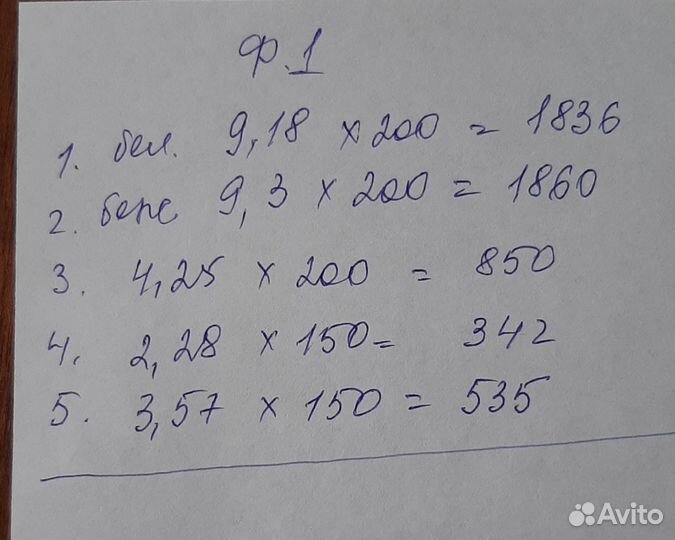 Ф.1
1. бел. 9,18 × 200 = 1836
2. беж 9,3 × 200 = 1860
3. 4,25 × 200 = 850
4. 2,28 × 150 = 342
5. 3,57 × 150 = 535
Avito